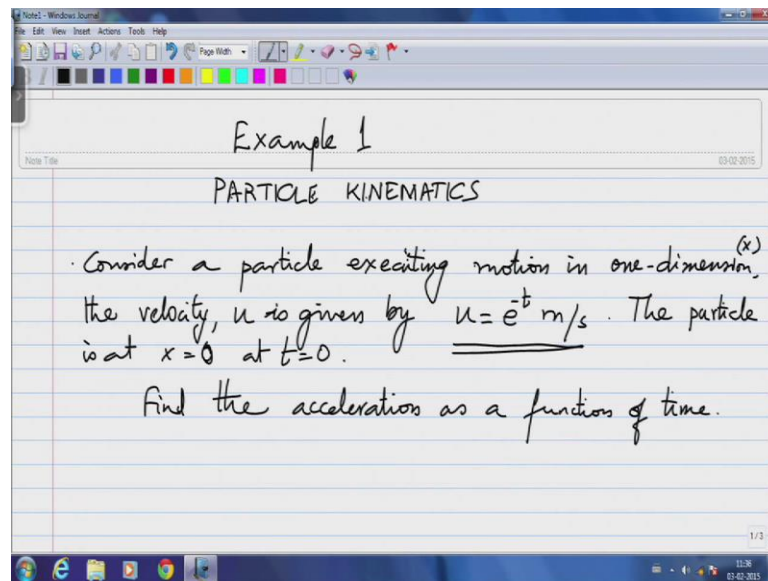 Note1 - Windows Journal
File Edit View Insert Actions Tools Help
Page Width
Example 1
Note Title
03-02-2015
PARTICLE KINEMATICS
(x)
Consider a particle executing motion in one-dimension,
the velocity, u is given by u = e^-t m/s. The particle
is at x = 0 at t = 0.
Find the acceleration as a function of time.
1/3
11:36
03-02-2015